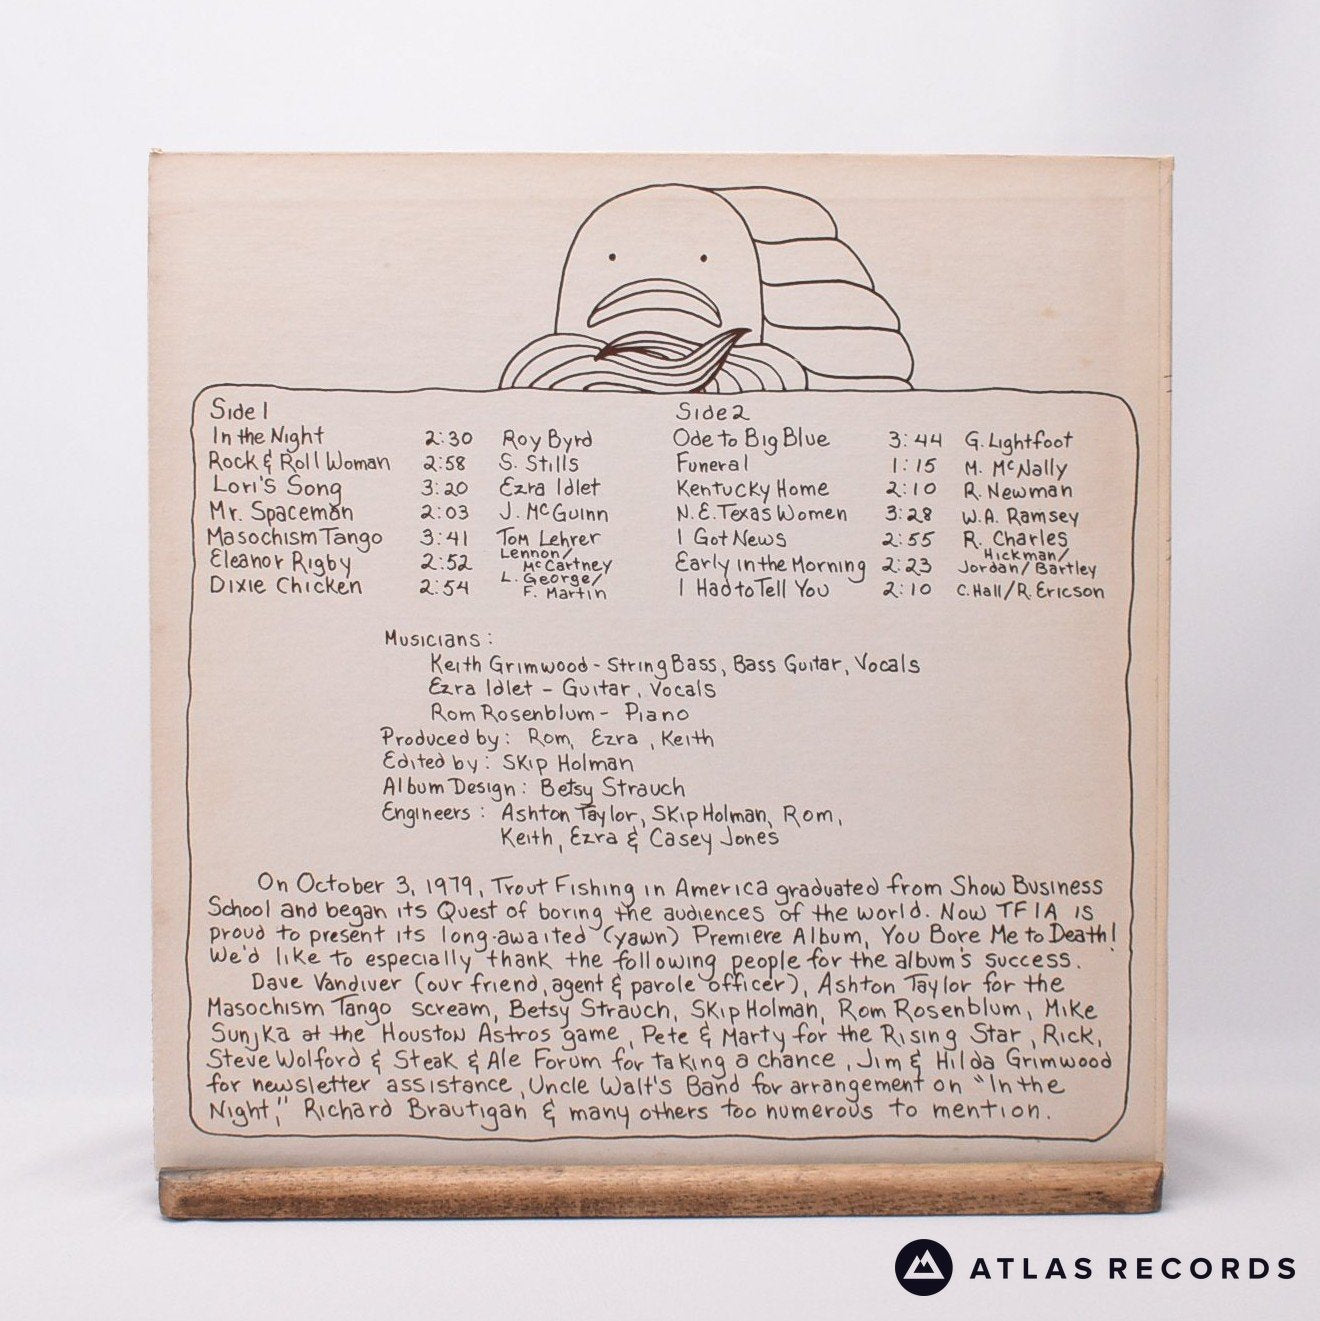 Side 1
In the Night 2:30 Roy Byrd
Rock & Roll Woman 2:58 S. Stills
Lori's Song 3:20 Ezra Idlet
Mr. Spaceman 2:03 J. McGuinn
Masochism Tango 3:41 Tom Lehrer
Eleanor Rigby 2:52 Lennon/
McCartney
Dixie Chicken 2:54 L. George/
F. Martin
Side 2
Ode to Big Blue 3:44 G. Lightfoot
Funeral 1:15 M. McNally
Kentucky Home 2:10 R. Newman
N.E. Texas Women 3:28 W.A. Ramsey
I Got News 2:55 R. Charles
Early in the Morning 2:23 Hickman/
Jordan/Bartley
I Had to Tell You 2:10 C. Hall/R. Ericson
Musicians:
Keith Grimwood - String Bass, Bass Guitar, Vocals
Ezra Idlet - Guitar, Vocals
Rom Rosenblum - Piano
Produced by: Rom, Ezra, Keith
Edited by: Skip Holman
Album Design: Betsy Strauch
Engineers: Ashton Taylor, Skip Holman, Rom,
Keith, Ezra & Casey Jones
On October 3, 1979, Trout Fishing in America graduated from Show Business
School and began its Quest of boring the audiences of the world. Now TFIA is
proud to present its long-awaited (yawn) Premiere Album, You Bore Me to Death!
We'd like to especially thank the following people for the album's success.
Dave Vandiver (our friend, agent & parole officer), Ashton Taylor for the
Masochism Tango scream, Betsy Strauch, Skip Holman, Rom Rosenblum, Mike
Sunjka at the Houston Astros game, Pete & Marty for the Rising Star, Rick,
Steve Wolford & Steak & Ale Forum for taking a chance, Jim & Hilda Grimwood
for newsletter assistance, Uncle Walt's Band for arrangement on "In the
Night," Richard Brautigan & many others too numerous to mention.
ATLAS RECORDS